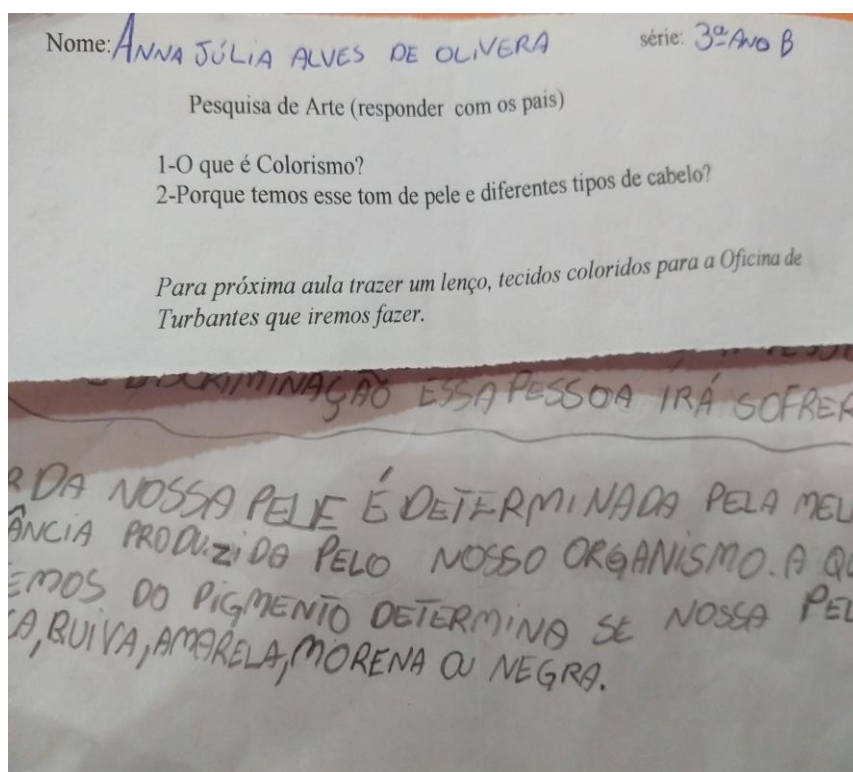 Nome: ANNA JÚLIA ALVES DE OLIVERA série: 3º ANO B
Pesquisa de Arte (responder com os pais)
1-O que é Colorismo?
2-Porque temos esse tom de pele e diferentes tipos de cabelo?
Para próxima aula trazer um lenço, tecidos coloridos para a Oficina de
Turbantes que iremos fazer.
DISCRIMINAÇÃO ESSA PESSOA IRÁ SOFRER
DA NOSSA PELE É DETERMINADA PELA MEL
ÂNCIA PRODUZIDA PELO NOSSO ORGANISMO. A QU
EMOS DO PIGMENTO DETERMINA SE NOSSA PEL
CA, RUIVA, AMARELA, MORENA OU NEGRA.